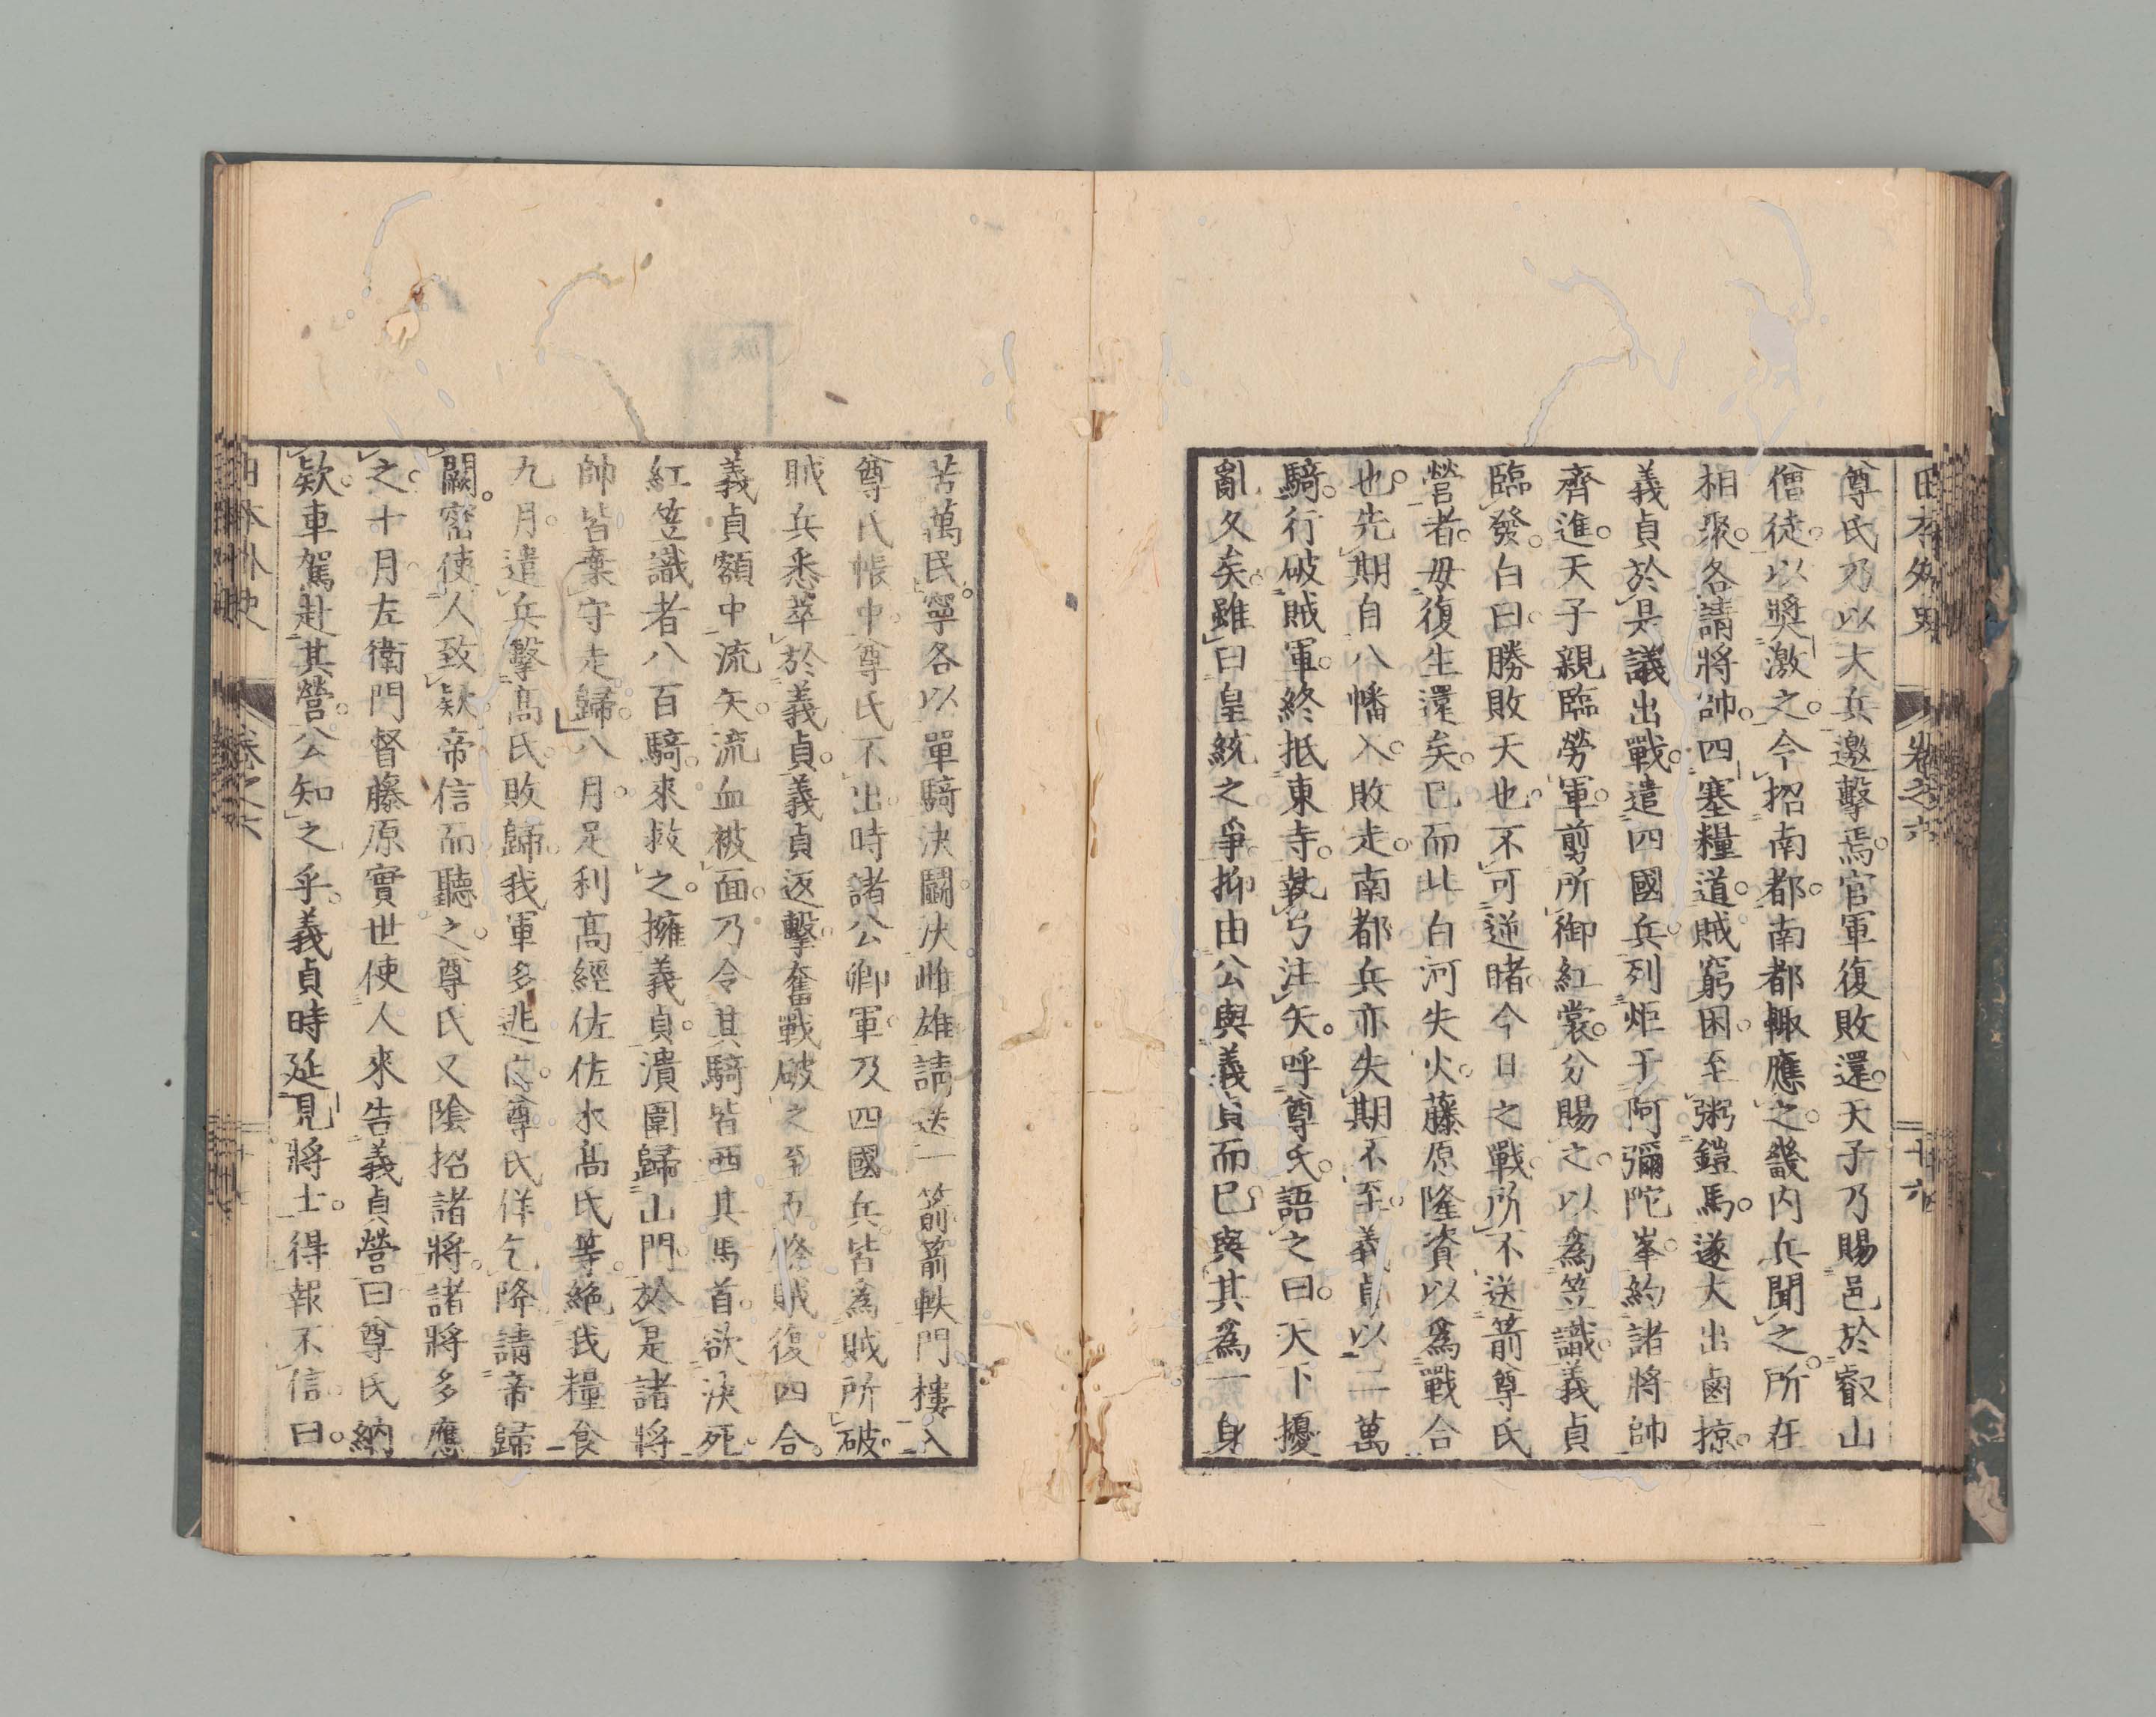 日本外史 卷之六 十六
尊氏乃以大兵邀擊焉。官軍復敗還。天子乃賜邑於叡山
僧徒。以奬激之。今招南都。南都輙應之。畿内兵聞之。所在
相聚。各請將帥。四塞糧道。賊窮困。至粥鎧馬。遂大出鹵掠。
義貞於是議出戰。遣四國兵。列炬于阿彌陀峯。約諸將帥
齊進。天子親臨勞軍。剪所御紅裳。分賜之。以爲笠識。義貞
臨發。白曰。勝敗天也。不可逆睹。今日之戰。所不送箭尊氏
營者。毋復生還矣。已而北白河失火。藤原隆資以爲戰合
也。先期自八幡入。敗走。南都兵亦失期不至。義貞以二萬
騎。行破賊軍。終抵東寺。執弓注矢。呼尊氏。語之曰。天下擾
亂久矣。雖曰皇統之爭。抑由公與義貞而已。與其爲一身
苦萬民。寧各以單騎決鬭。決雌雄。請送一箭。箭軼門樓入
尊氏帳中。尊氏不出。時諸公卿軍。及四國兵。皆爲賊所破。
賊兵悉萃於義貞。義貞返擊奮戰。破之至五條。賊復四合。
義貞額中流矢。流血被面。乃令其騎皆西其馬首。欲決死。
紅笠識者八百騎。來救之。擁義貞。潰圍歸山門。於是諸將
帥皆棄守走歸。八月。足利高經佐佐木高氏等。絶我糧食
九月。遣兵擊高氏。敗歸。我軍多逃亡。尊氏佯乞降。請帝歸
闕。密使人致欵。帝信而聽之。尊氏又陰招諸將。諸將多應
之。十月。左衛門督藤原實世使人來告義貞營曰。尊氏納
欵。車駕赴其營。公知之乎。義貞時延見將士。得報不信。曰。
日本外史 卷之六